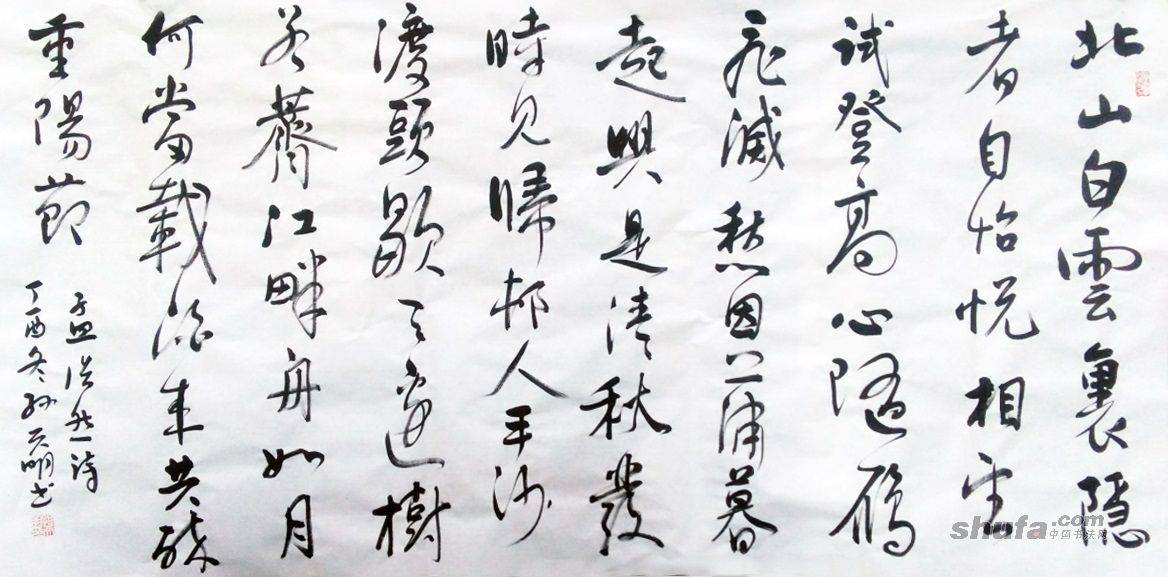 北山白雲裏隱
者自怡悦相望
試登高心隨雁
飛滅愁因薄暮
起興是清秋發
時見歸邨人平沙
渡頭歇天邊樹
若薺江畔舟如月
何當載酒來共醉
重陽節
孟浩然詩
丁酉冬孙天明书
shufa.com
中国书法网